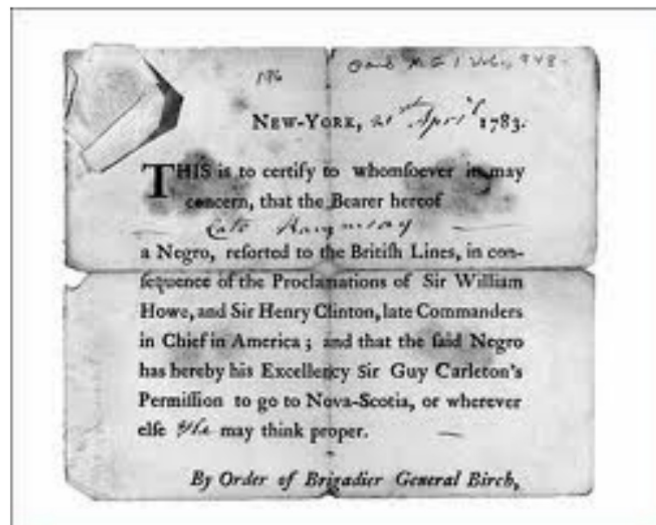 NEW-YORK, 21st April 1783.
THIS is to certify to whomſoever it may
concern, that the Bearer hereof
Cato Ramsay
a Negro, reſorted to the Britiſh Lines, in con-
ſequence of the Proclamations of Sir William
Howe, and Sir Henry Clinton, late Commanders
in Chief in America; and that the ſaid Negro
has hereby his Excellency Sir Guy Carleton's
Permiſſion to go to Nova-Scotia, or wherever
elſe may think proper.
By Order of Brigadier General Birch,